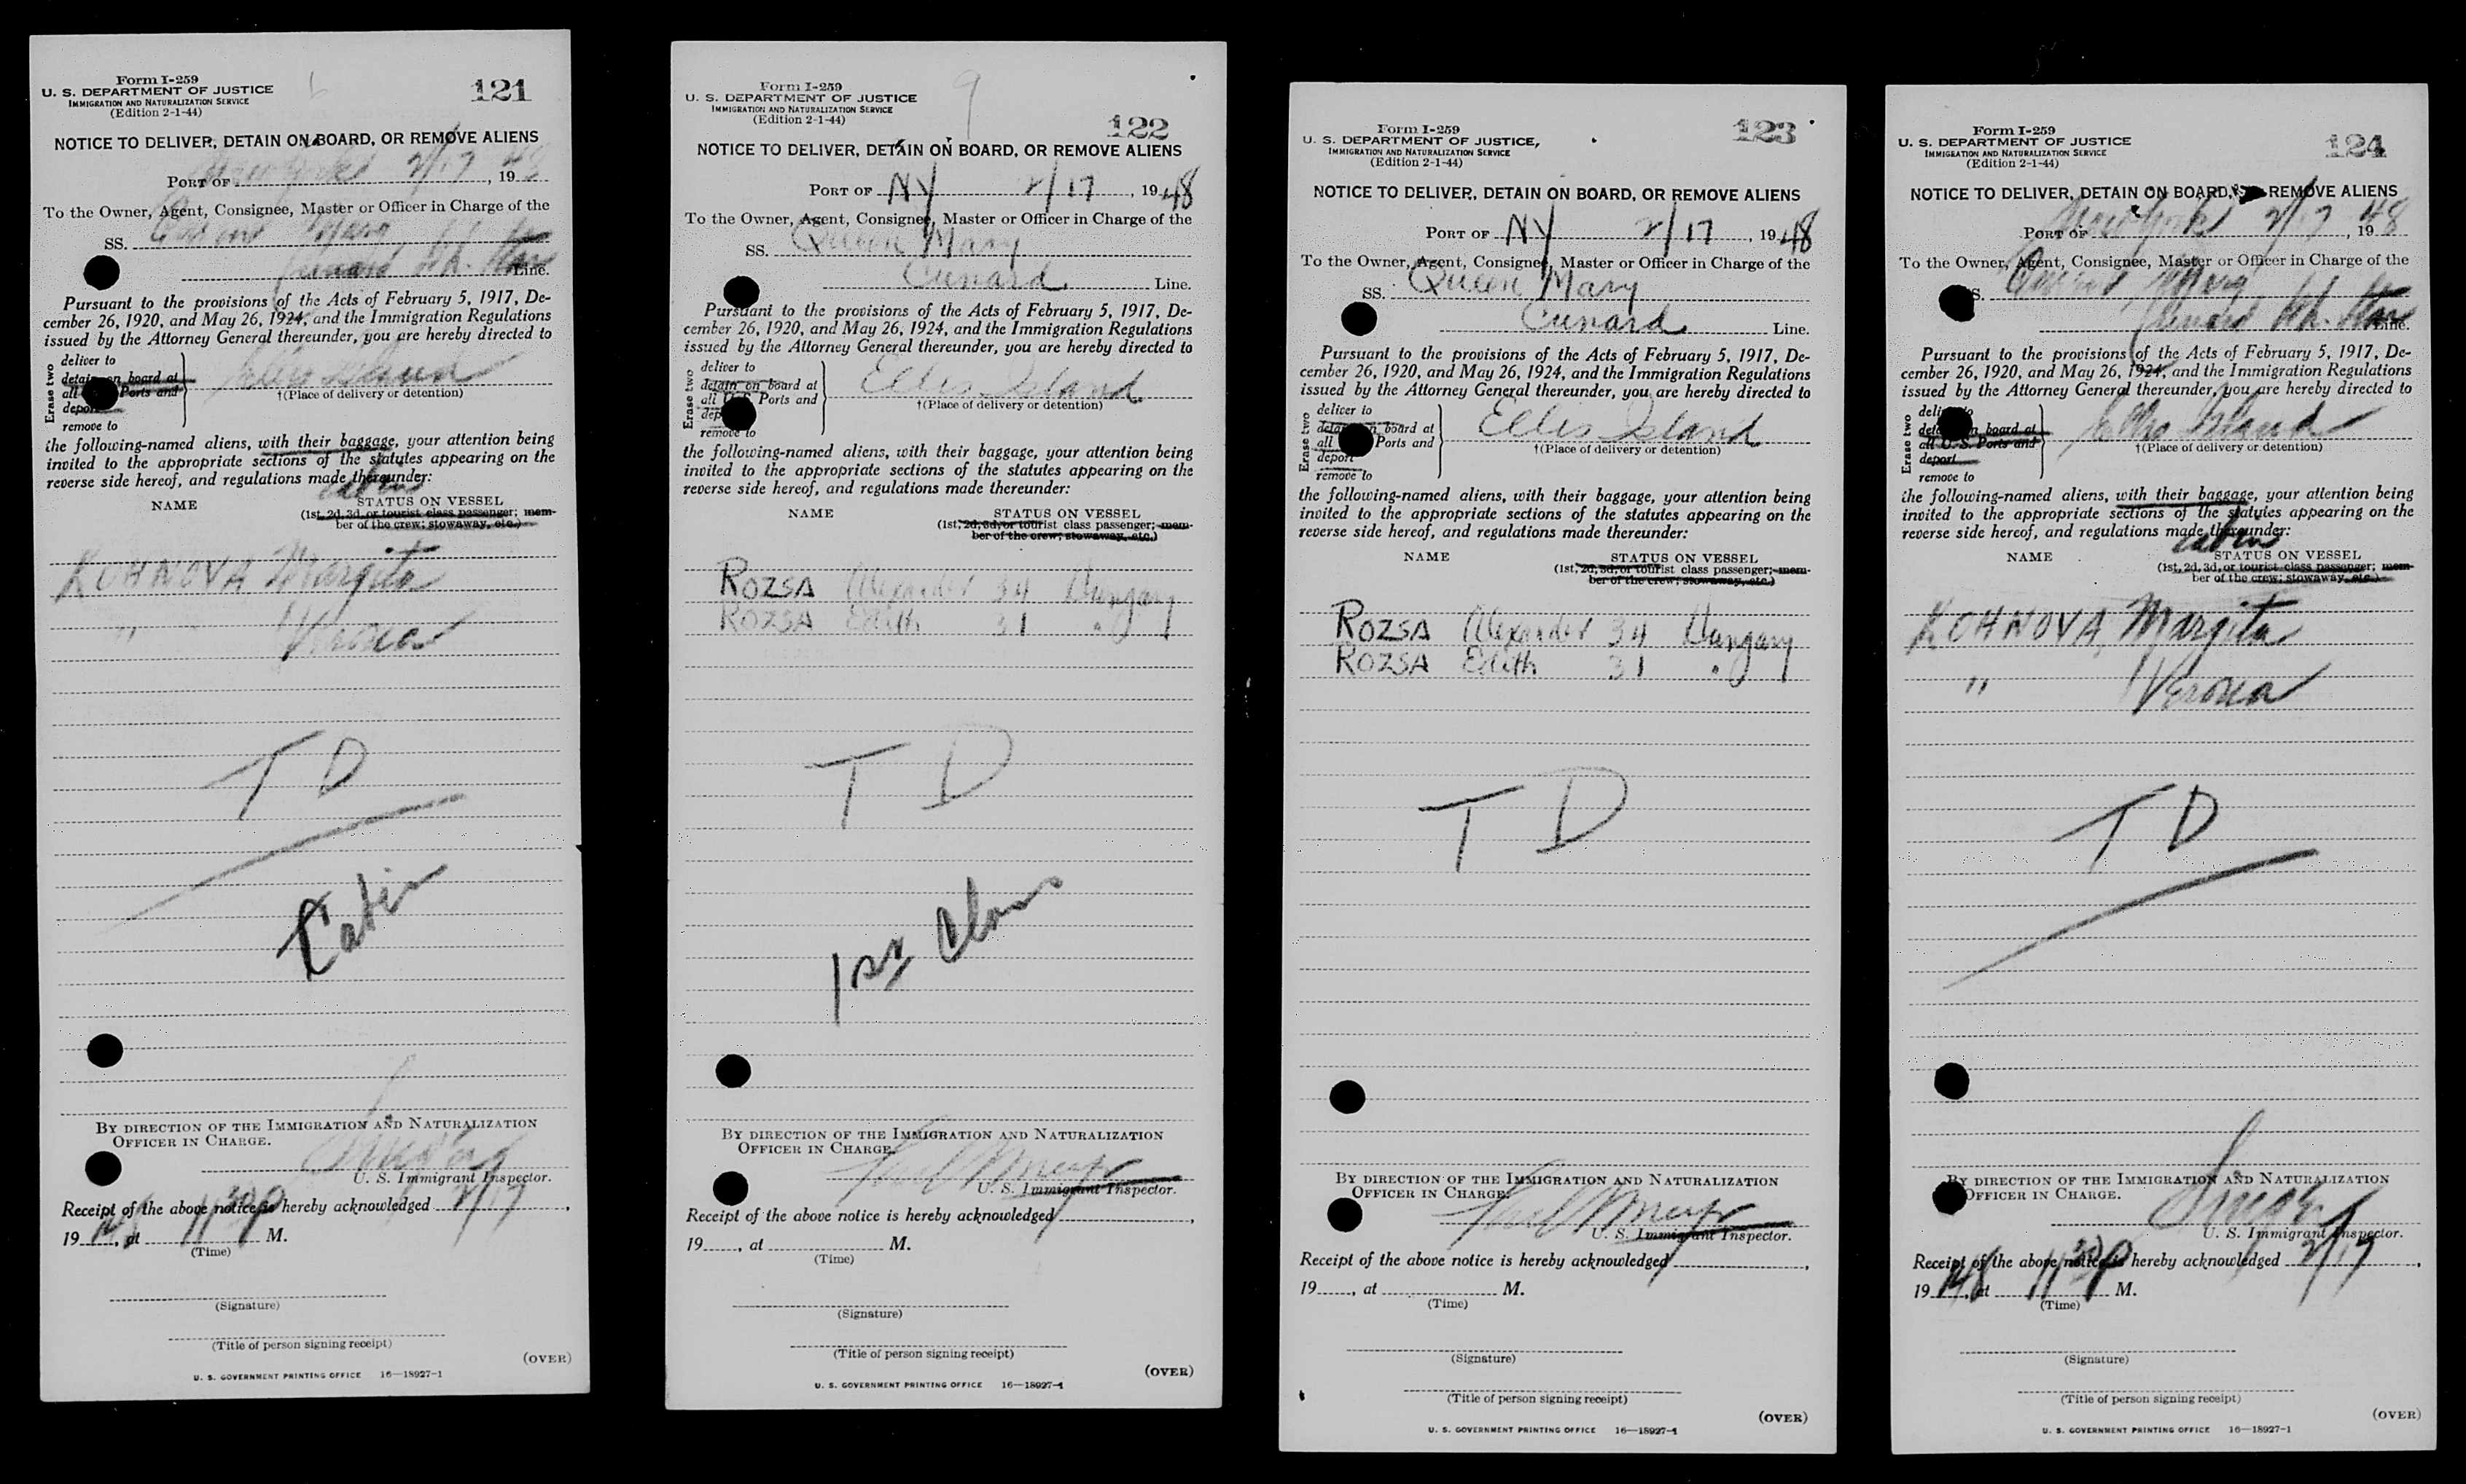 Form I-259
U. S. DEPARTMENT OF JUSTICE
IMMIGRATION AND NATURALIZATION SERVICE
(Edition 2-1-44)
121
NOTICE TO DELIVER, DETAIN ON BOARD, OR REMOVE ALIENS
PORT OF New York 2/17, 1948
To the Owner, Agent, Consignee, Master or Officer in Charge of the
SS. Queen Mary
Cunard Wh. Star Line.
Pursuant to the provisions of the Acts of February 5, 1917, De-
cember 26, 1920, and May 26, 1924, and the Immigration Regulations
issued by the Attorney General thereunder, you are hereby directed to
Erase two
deliver to
detain on board at
all Ports and
deport
remove to
Ellis Island
†(Place of delivery or detention)
the following-named aliens, with their baggage, your attention being
invited to the appropriate sections of the statutes appearing on the
reverse side hereof, and regulations made thereunder:
cabin
NAME STATUS ON VESSEL
(1st, 2d, 3d, or tourist class passenger; mem-
ber of the crew; stowaway, etc.)
KOHNOVA Margita
" Verona
T D
Cabin
BY DIRECTION OF THE IMMIGRATION AND NATURALIZATION
OFFICER IN CHARGE.
U. S. Immigrant Inspector.
Receipt of the above notice is hereby acknowledged 2/17,
1948, at 11 30 P M.
(Time)
(Signature)
(Title of person signing receipt)
(OVER)
U. S. GOVERNMENT PRINTING OFFICE 16—18927-1
9
Form I-259
U. S. DEPARTMENT OF JUSTICE
IMMIGRATION AND NATURALIZATION SERVICE
(Edition 2-1-44)
122
NOTICE TO DELIVER, DETAIN ON BOARD, OR REMOVE ALIENS
PORT OF NY 2/17, 1948
To the Owner, Agent, Consignee, Master or Officer in Charge of the
SS. Queen Mary
Cunard Line.
Pursuant to the provisions of the Acts of February 5, 1917, De-
cember 26, 1920, and May 26, 1924, and the Immigration Regulations
issued by the Attorney General thereunder, you are hereby directed to
Erase two
deliver to
detain on board at
all U.S. Ports and
deport
remove to
Ellis Island
†(Place of delivery or detention)
the following-named aliens, with their baggage, your attention being
invited to the appropriate sections of the statutes appearing on the
reverse side hereof, and regulations made thereunder:
NAME STATUS ON VESSEL
(1st, 2d, 3d, or tourist class passenger; mem-
ber of the crew; stowaway, etc.)
ROZSA Alexander 34 Hungary
ROZSA Edith 31 "
T D
1st Class
BY DIRECTION OF THE IMMIGRATION AND NATURALIZATION
OFFICER IN CHARGE.
U. S. Immigrant Inspector.
Receipt of the above notice is hereby acknowledged,
19, at M.
(Time)
(Signature)
(Title of person signing receipt)
(OVER)
U. S. GOVERNMENT PRINTING OFFICE 16—18927-1
Form I-259
U. S. DEPARTMENT OF JUSTICE,
IMMIGRATION AND NATURALIZATION SERVICE
(Edition 2-1-44)
123
NOTICE TO DELIVER, DETAIN ON BOARD, OR REMOVE ALIENS
PORT OF NY 2/17, 1948
To the Owner, Agent, Consignee, Master or Officer in Charge of the
SS. Queen Mary
Cunard Line.
Pursuant to the provisions of the Acts of February 5, 1917, De-
cember 26, 1920, and May 26, 1924, and the Immigration Regulations
issued by the Attorney General thereunder, you are hereby directed to
Erase two
deliver to
detain on board at
all Ports and
deport
remove to
Ellis Island
†(Place of delivery or detention)
the following-named aliens, with their baggage, your attention being
invited to the appropriate sections of the statutes appearing on the
reverse side hereof, and regulations made thereunder:
NAME STATUS ON VESSEL
(1st, 2d, 3d, or tourist class passenger; mem-
ber of the crew; stowaway, etc.)
ROZSA Alexander 34 Hungary
ROZSA Edith 31 "
T D
BY DIRECTION OF THE IMMIGRATION AND NATURALIZATION
OFFICER IN CHARGE.
U. S. Immigrant Inspector.
Receipt of the above notice is hereby acknowledged,
19, at M.
(Time)
(Signature)
(Title of person signing receipt)
(OVER)
U. S. GOVERNMENT PRINTING OFFICE 16—18927-1
Form I-259
U. S. DEPARTMENT OF JUSTICE
IMMIGRATION AND NATURALIZATION SERVICE
(Edition 2-1-44)
124
NOTICE TO DELIVER, DETAIN ON BOARD, REMOVE ALIENS
PORT OF New York 2/17, 1948
To the Owner, Agent, Consignee, Master or Officer in Charge of the
SS. Queen Mary
Cunard Wh. Star Line.
Pursuant to the provisions of the Acts of February 5, 1917, De-
cember 26, 1920, and May 26, 1924, and the Immigration Regulations
issued by the Attorney General thereunder, you are hereby directed to
Erase two
deliver to
detain on board at
all U. S. Ports and
deport
remove to
Ellis Island
†(Place of delivery or detention)
the following-named aliens, with their baggage, your attention being
invited to the appropriate sections of the statutes appearing on the
reverse side hereof, and regulations made thereunder:
cabin
NAME STATUS ON VESSEL
(1st, 2d, 3d, or tourist class passenger; mem-
ber of the crew; stowaway, etc.)
KOHNOVA, Margita
" Verona
T D
BY DIRECTION OF THE IMMIGRATION AND NATURALIZATION
OFFICER IN CHARGE.
U. S. Immigrant Inspector.
Receipt of the above notice is hereby acknowledged 2/17,
1948, at 11 30 P M.
(Time)
(Signature)
(Title of person signing receipt)
(OVER)
U. S. GOVERNMENT PRINTING OFFICE 16—18927-1